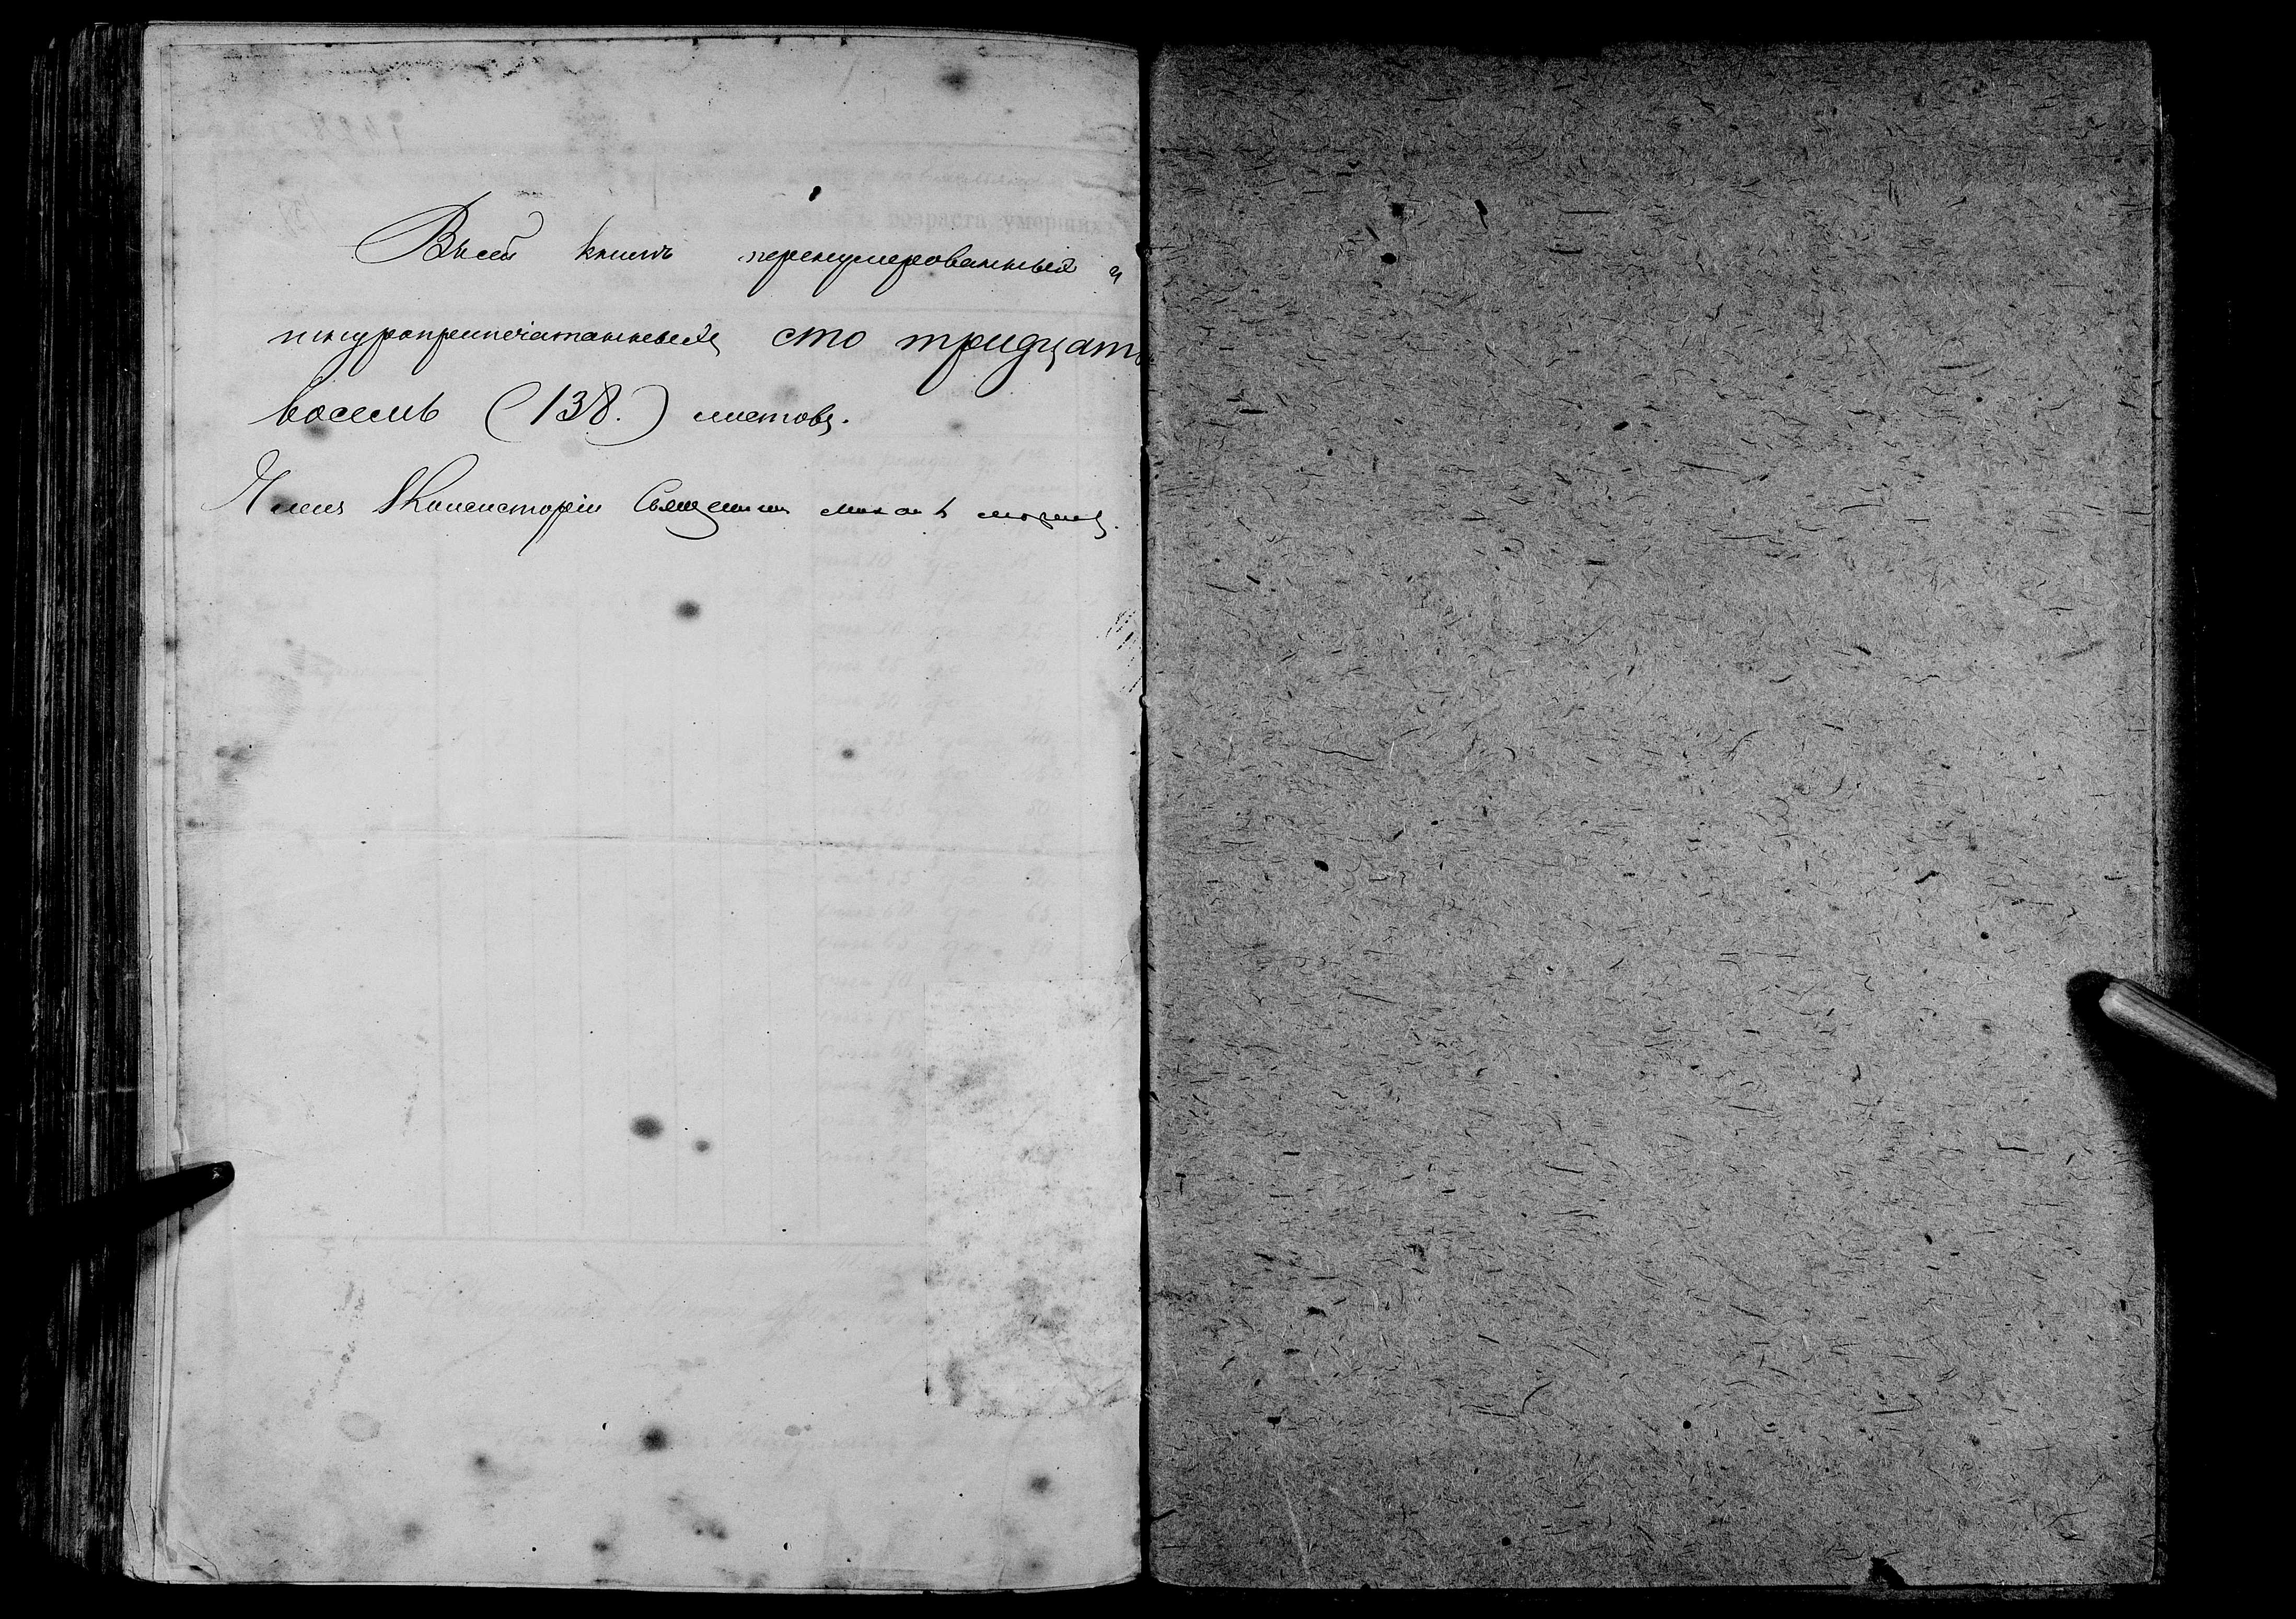 Въсей книгѣ перенумерованныхъ и
шнуроприпечатанныхъ сто тридцать
восемь (138.) листовъ.
Членъ Консисторіи Священникъ